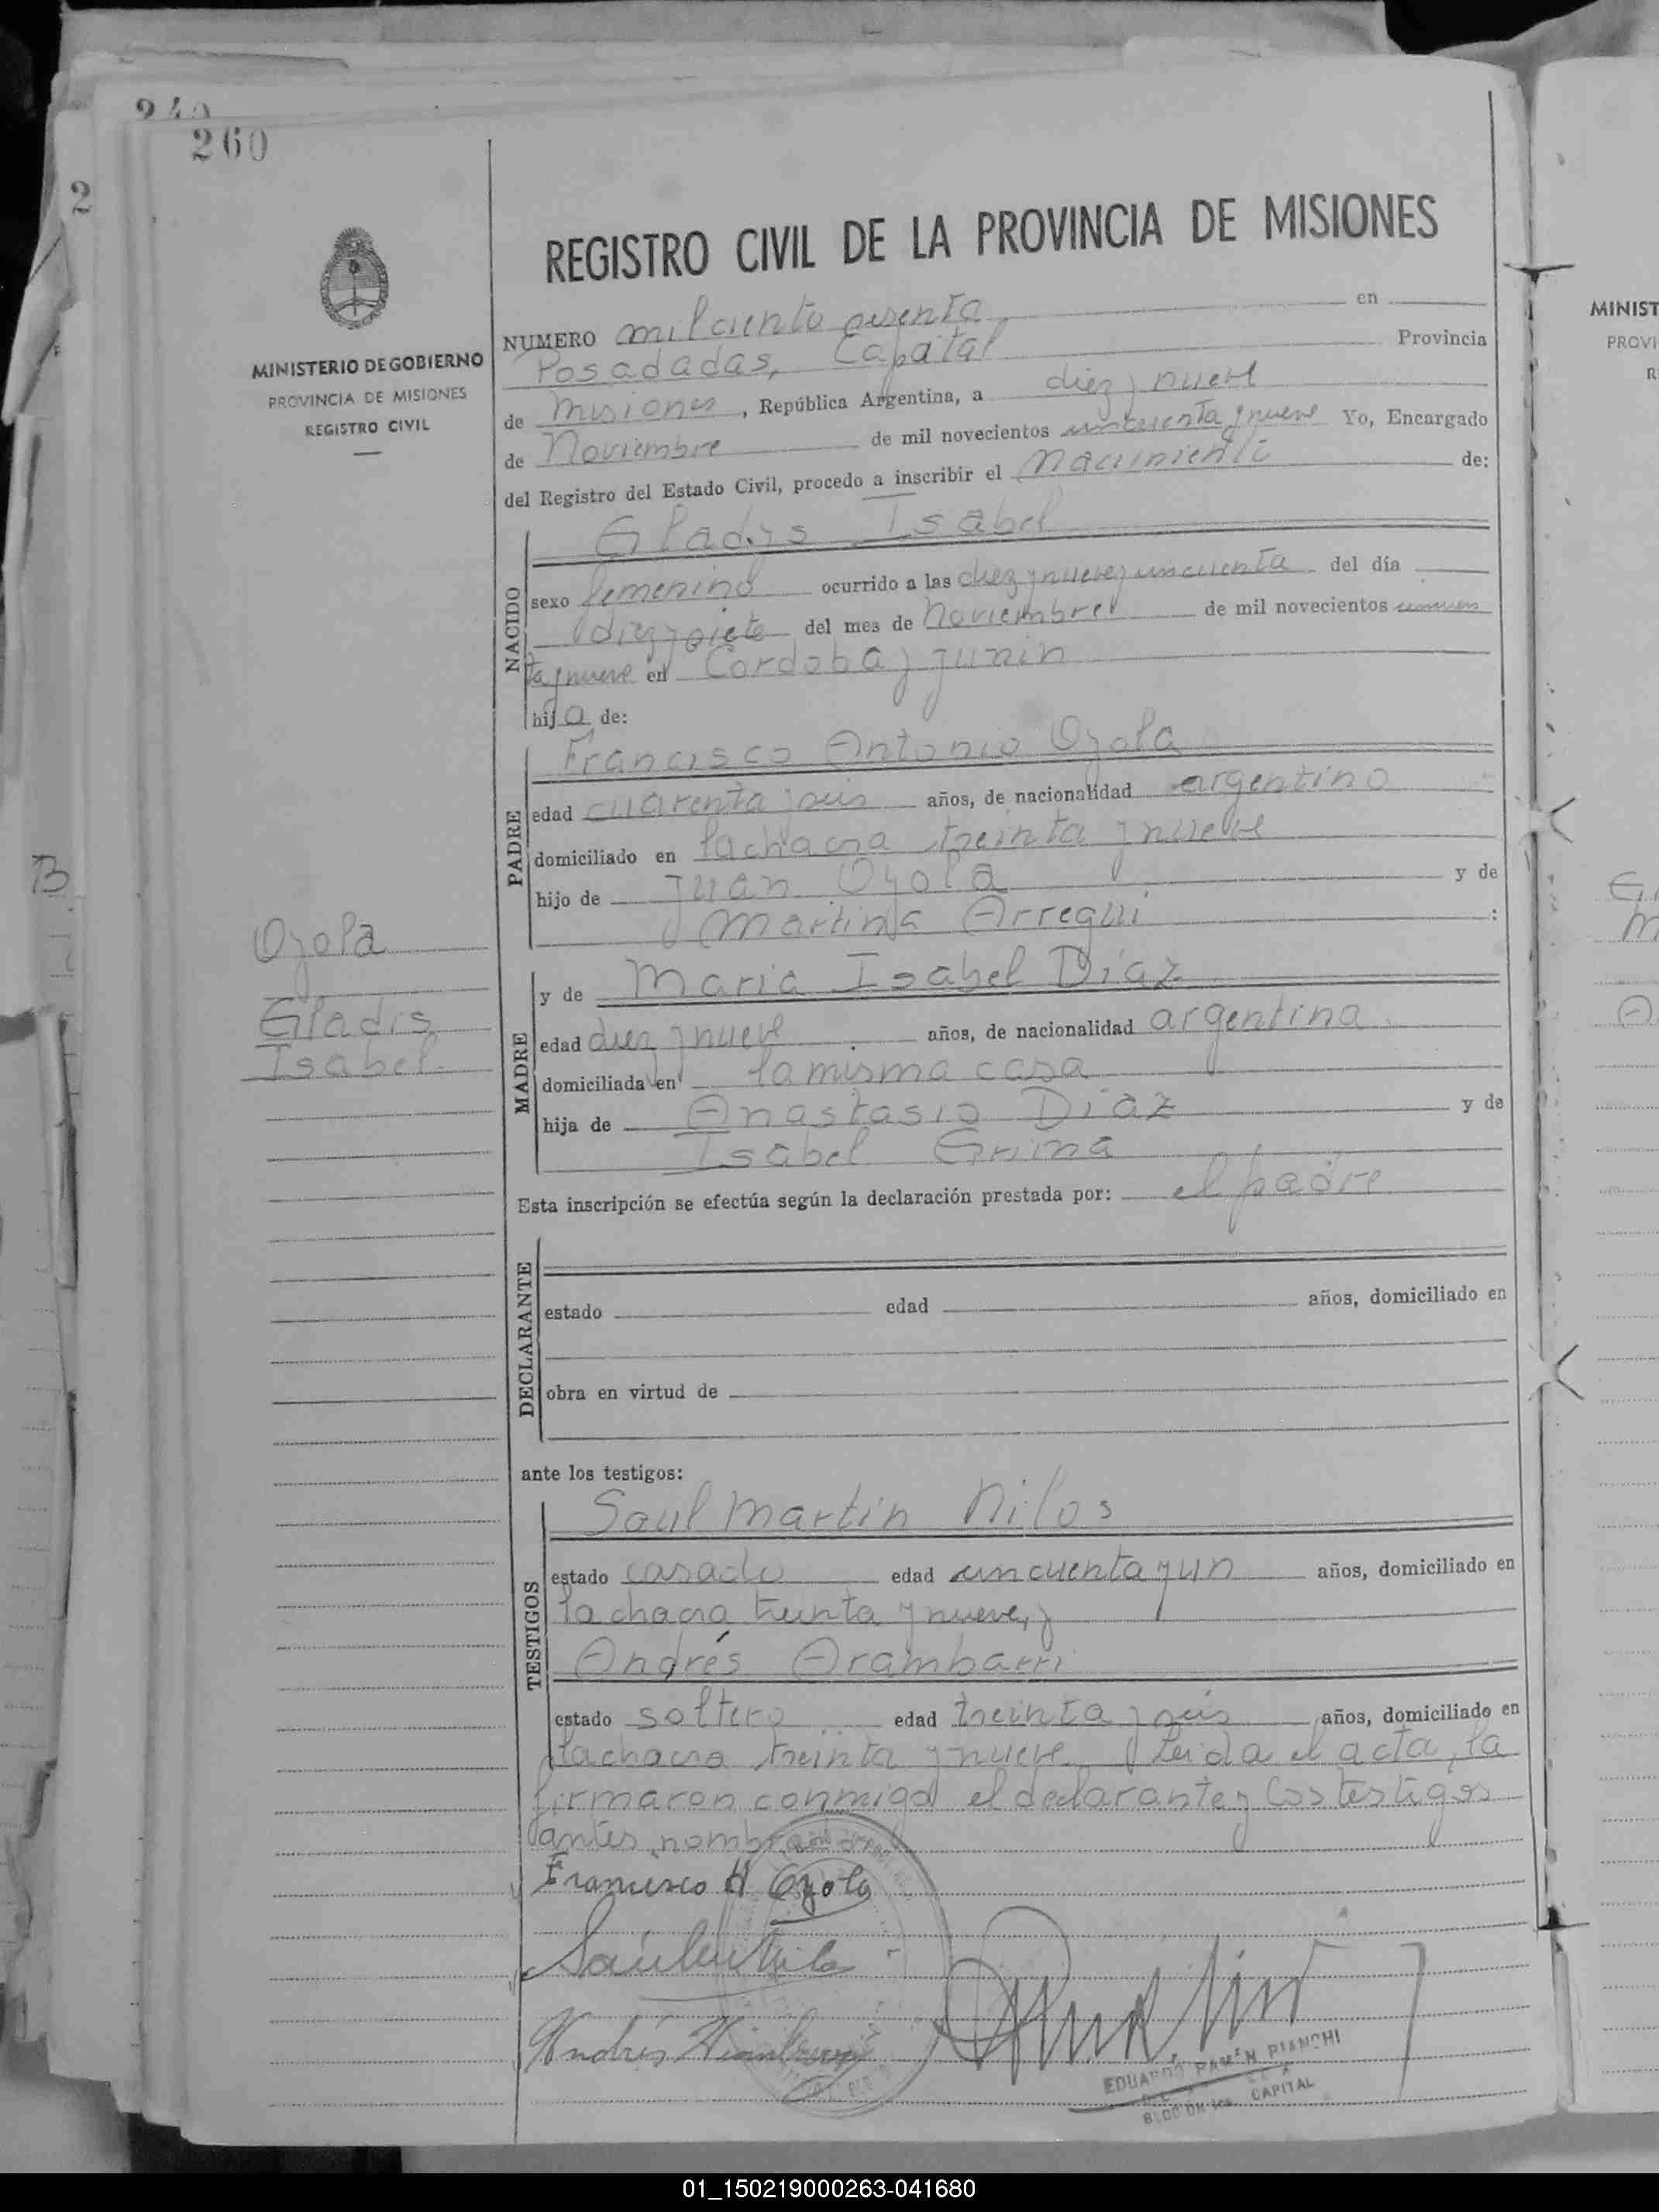 260
2
REGISTRO CIVIL DE LA PROVINCIA DE MISIONES
MINISTERIO DE GOBIERNO
PROVINCIA DE MISIONES
REGISTRO CIVIL
NUMERO mil ciento sesenta en
Posadadas, Capital Provincia
de Misiones, República Argentina, a diez y nueve
de Noviembre de mil novecientos cincuenta y nueve Yo, Encargado
del Registro del Estado Civil, procedo a inscribir el nacimiento de:
NACIDO
Gladys Isabel
sexo femenino ocurrido a las diez y nueve y cincuenta del día
diez y siete del mes de Noviembre de mil novecientos cincuen
ta y nueve en Cordoba y Junin
hija de:
PADRE
Francisco Antonio Oyola
edad cuarenta y seis años, de nacionalidad argentino
domiciliado en la chacra treinta y nueve
hijo de Juan Oyola y de
Martina Arregui :
Oyola
Gladis
Isabel
MADRE
y de Maria Isabel Diaz
edad diez y nueve años, de nacionalidad argentina
domiciliada en la misma casa
hija de Anastasio Diaz y de
Isabel
Esta inscripción se efectúa según la declaración prestada por: el padre
DECLARANTE
estado edad años, domiciliado en
obra en virtud de
ante los testigos:
TESTIGOS
Saul Martin Nilos
estado casado edad cincuenta y un años, domiciliado en
la chacra treinta y nueve, y
Andrés Arambarri
estado soltero edad treinta y seis años, domiciliado en
la chacra treinta y nueve. Leida el acta, la
firmaron conmigo el declarante y los testigos
antes nombrados
Francisco A Oyola
Andrés
EDUARDO RAMÓN BIANCHI
CAPITAL
MINIST
PROVI
R
B
01_150219000263-041680